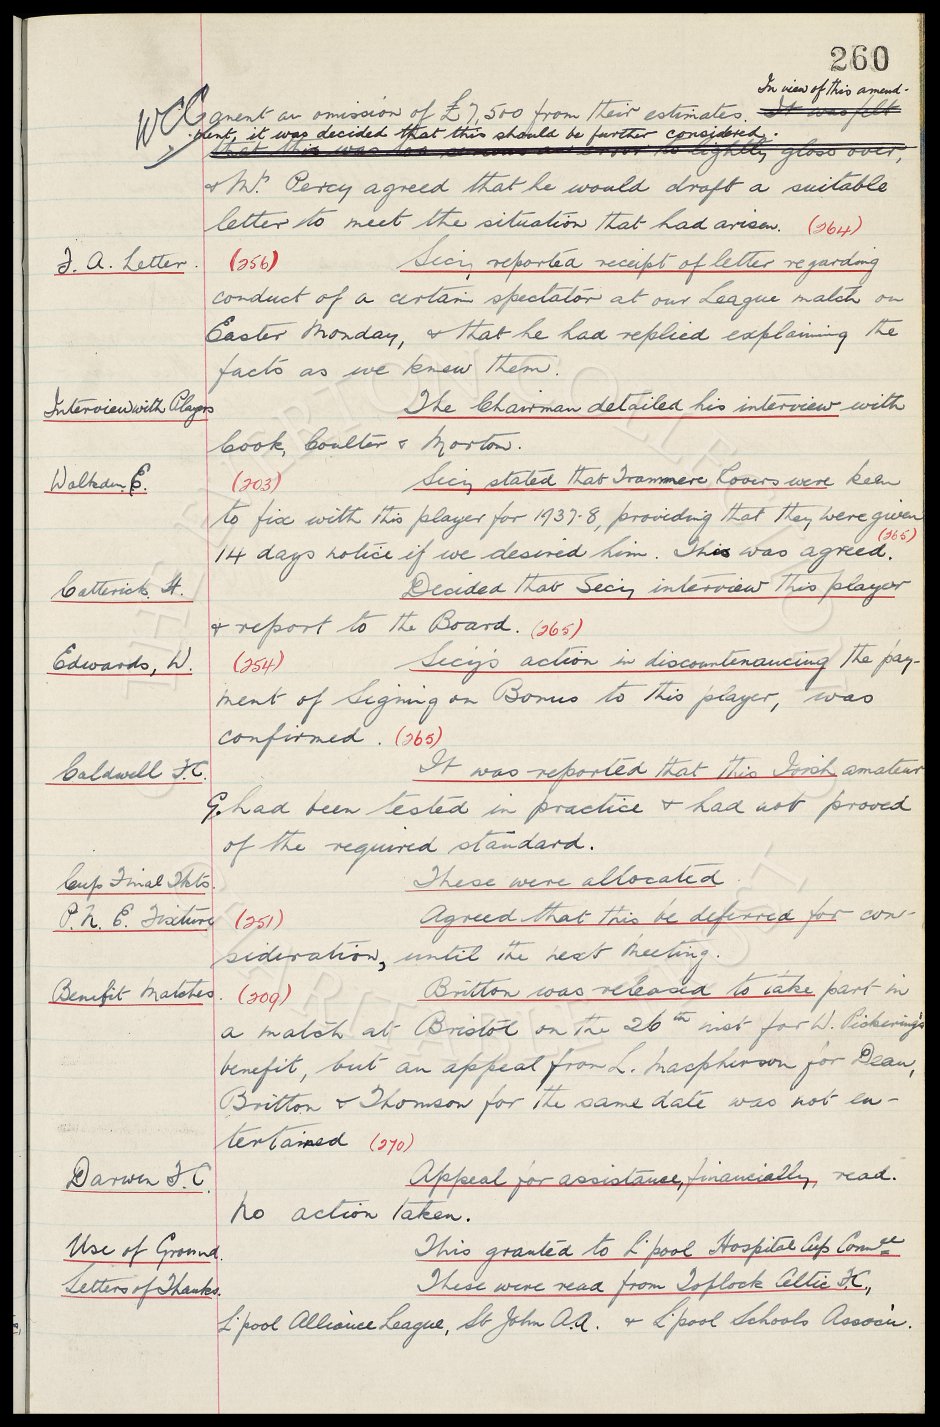 260
In view of this amend-
WCC gment an omission of £7,500 from their estimates. It was felt
ment, it was decided that this should be further considered.
that this was too serious an error to lightly gloss over,
& Mr. Percy agreed that he would draft a suitable
letter to meet the situation that had arisen. (264)
F. A. Letter. (256) Secy reported receipt of letter regarding
conduct of a certain spectator at our League match on
Easter Monday, & that he had replied explaining the
facts as we knew them.
Interview with Players The Chairman detailed his interview with
Cook, Coulter & Morton.
Walkden. E. (203) Secy stated that Tranmere Rovers were keen
to fix with this player for 1937-8, providing that they were given
14 days notice if we desired him. This was agreed. (265)
Catterick. H. Decided that Secy interview this player
& report to the Board. (265)
Edwards, W. (254) Secy's action in discountenancing the pay-
ment of Signing on Bonus to this player, was
confirmed. (265)
Caldwell F.C. It was reported that this Irish amateur
G. had been tested in practice & had not proved
of the required standard.
Cup Final Tkts. These were allocated
P. N. E. Fixture (251) Agreed that this be deferred for con-
sideration, until the next meeting.
Benefit Matches. (209) Britton was released to take part in
a match at Bristol on the 26th inst for W. Pickering's
benefit, but an appeal from L. Macpherson for Dean,
Britton & Thomson for the same date was not en-
tertained (270)
Darwen F.C. Appeal for assistance, financially, read.
No action taken.
Use of Ground. This granted to L'pool Hospital Cup Comee
Letters of Thanks. These were read from Toflock Celtic F.C.,
L'pool Alliance League, St John A.A. & L'pool Schools Associn.
THE EVERTON COLLECTION
CHARITABLE TRUST